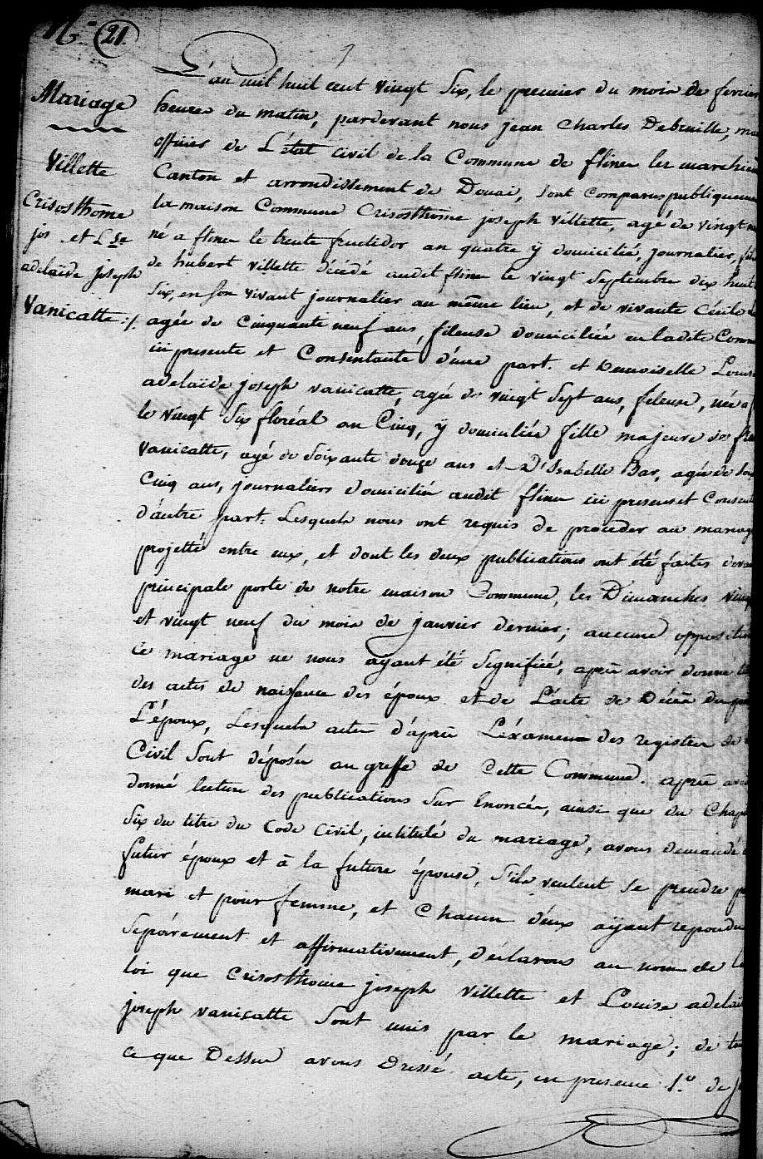 N° 21
Mariage
Villette
Crisosthome
jos. et Lse
adelaïde joseph
Vanicatte ./.
L'an mil huit cent vingt six, le premier du mois de fevrier
heures du matin, pardevant nous jean Charles Debruille,
officier de L'état civil de la Commune de flines lez marchien
Canton et arrondissement de Douai, sont comparus publiquemen
la maison Commune Crisosthome joseph Villette, agé de vingt n
né a flines le trente fructidor an quatre y domicilié, journalier, fils
de hubert Villette décédé audit flines le vingt Septembre dix huit
Six, en son vivant journalier au même lieu, et de vivante Cécile
agée de Cinquante neuf ans, fileuse domiciliée en ladite Comm
ici presente et Consentante d'une part. et Demoiselle Louise
adelaïde joseph vanicatte, agée de vingt Sept ans, fileuse, née a
le vingt Six floréal an Cinq, y domiciliée fille majeure de
Vanicatte, agé de Soixante douze ans et D'Isabelle Bar, agée de Soix
Cinq ans, journaliers domiciliés audit flines ici presens et Consen
d'autre part. Lesquels nous ont requis de procéder au mariage
projetté entre eux, et dont les deux publications ont été faites devan
principale porte de notre maison Commune, les Dimanches ving
et vingt neuf du mois de janvier dernier; aucune opposition
ce mariage ne nous ayant été Signifiée, après avoir donné
des actes de naissance des époux et de L'acte de Décès du
L'époux, Lesquels actes d'après L'éxamen des registres de
Civil Sont déposés au greffe de cette Commune. après avoi
donné lecture des publications Sur Enoncées, ainsi que du Chap
Six du titre du Code Civil, intitulé du mariage, avons demandé
futur époux et à la future épouse, S'ils veulent Se prendre p
mari et pour femme, et Chacun d'eux ayant repondu
Séparément et affirmativement, Déclarons au nom de la
loi que Crisosthome joseph Villette et Louise adelaï
joseph vanicatte Sont unis par le mariage; de tou
ce que Dessus avons Dressé acte, en presence 1.° de